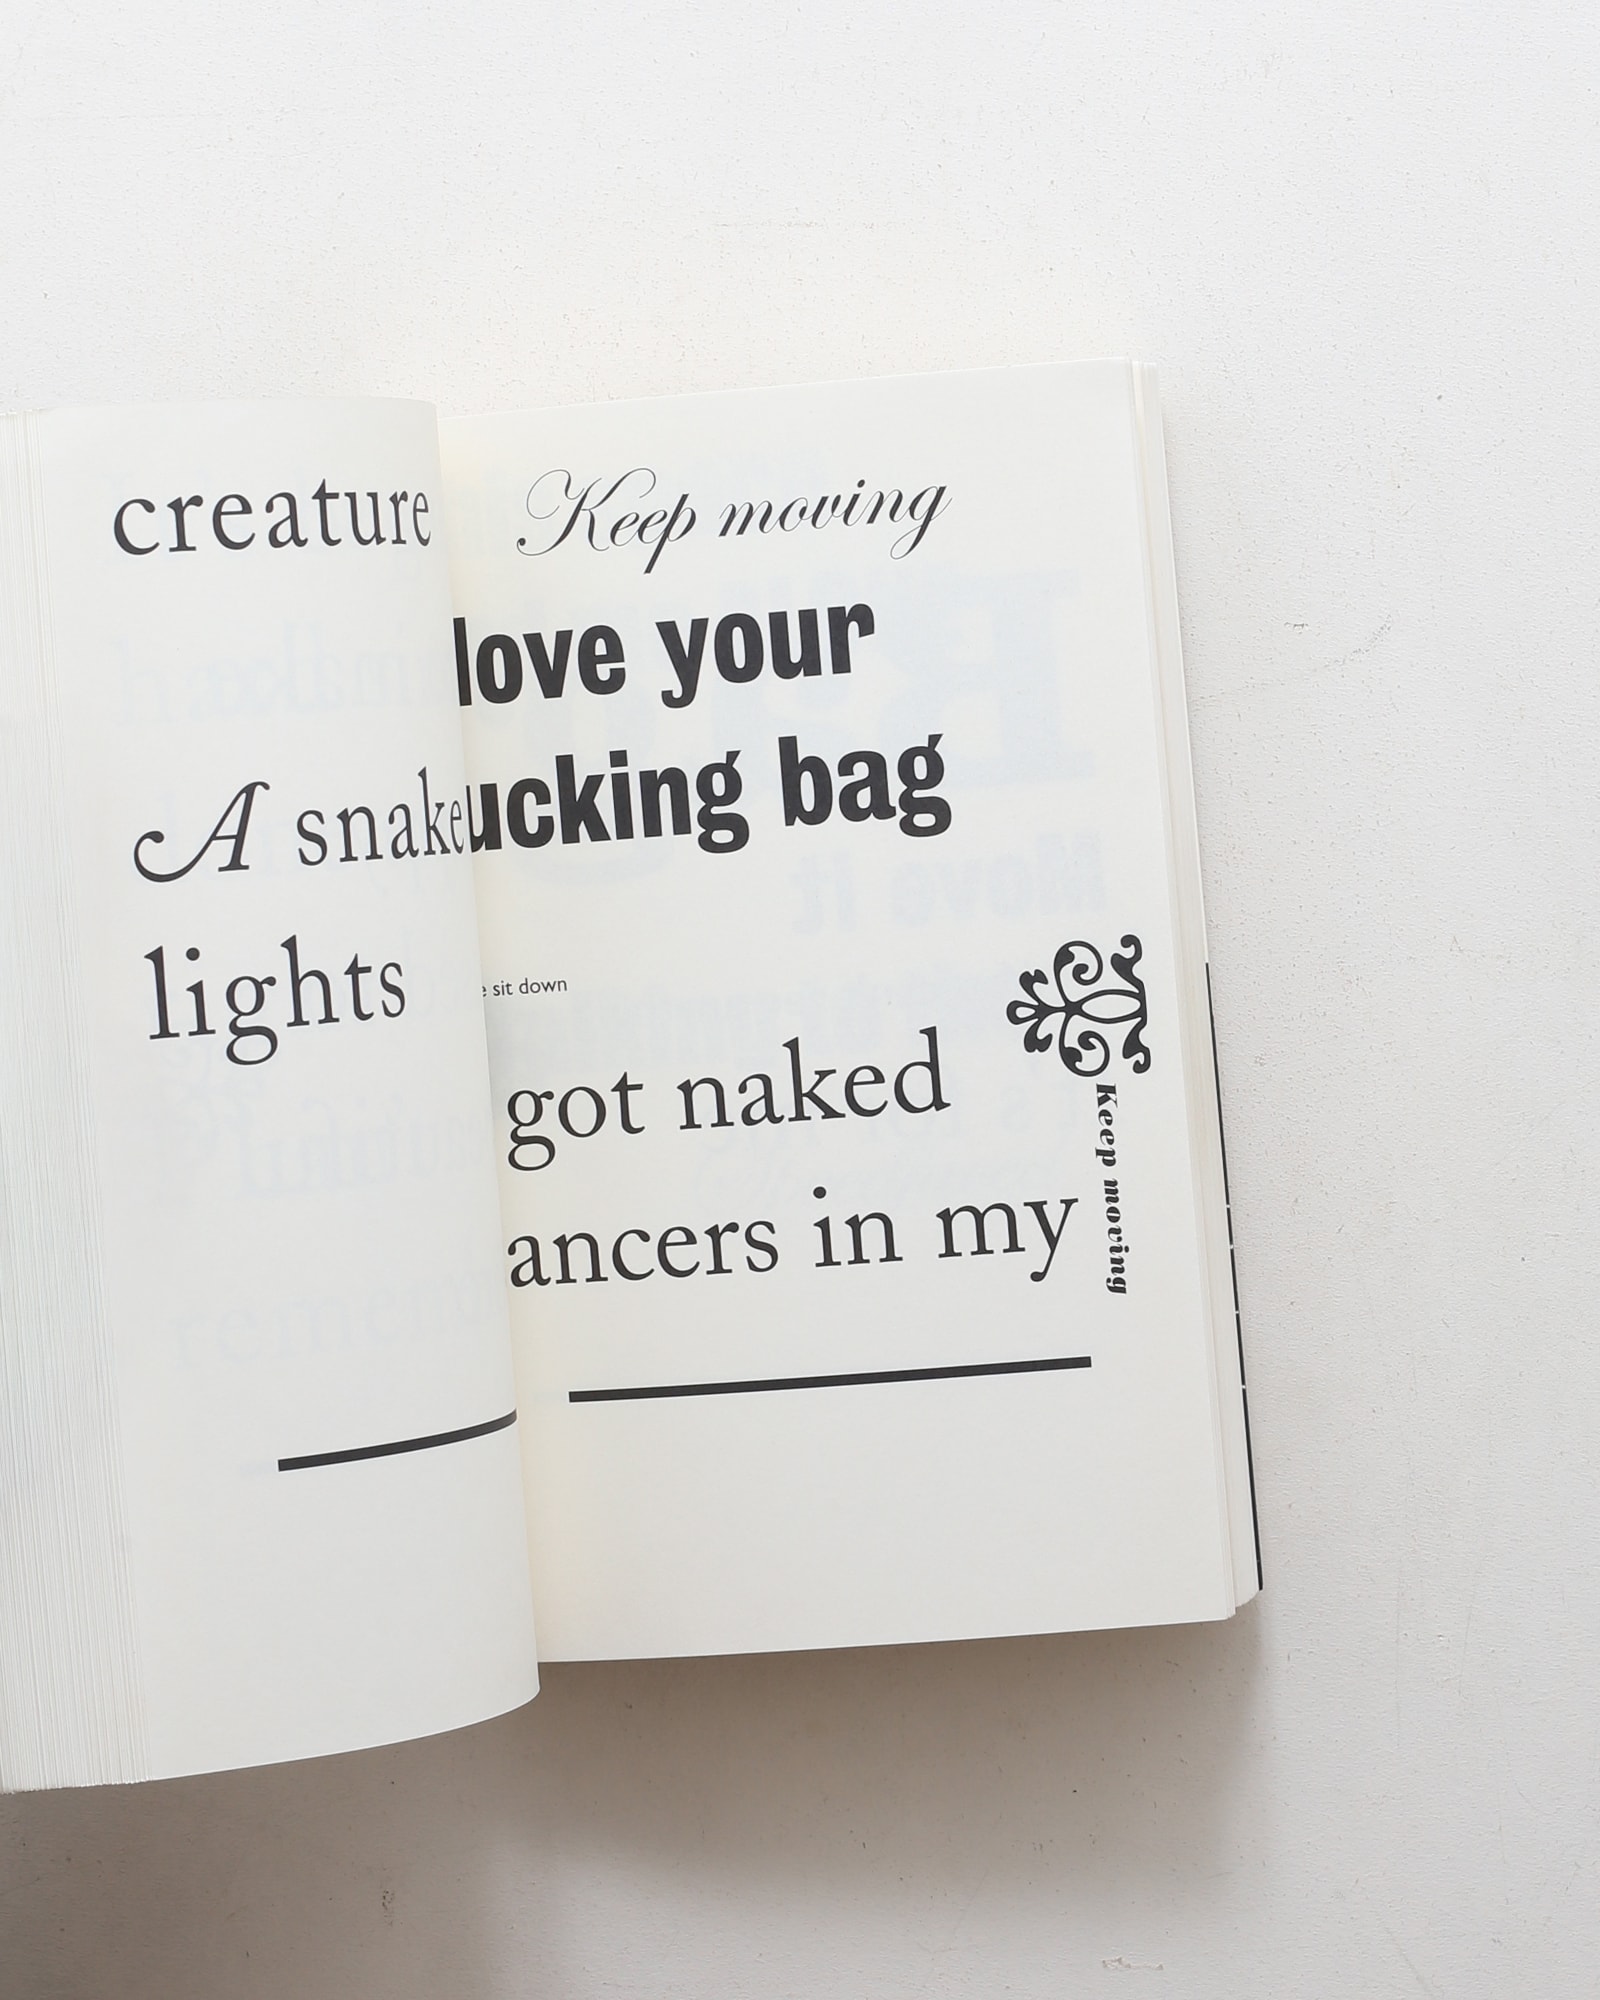 creature
A snake
lights
Keep moving
love your
ucking bag
e sit down
got naked
ancers in my
Keep moving